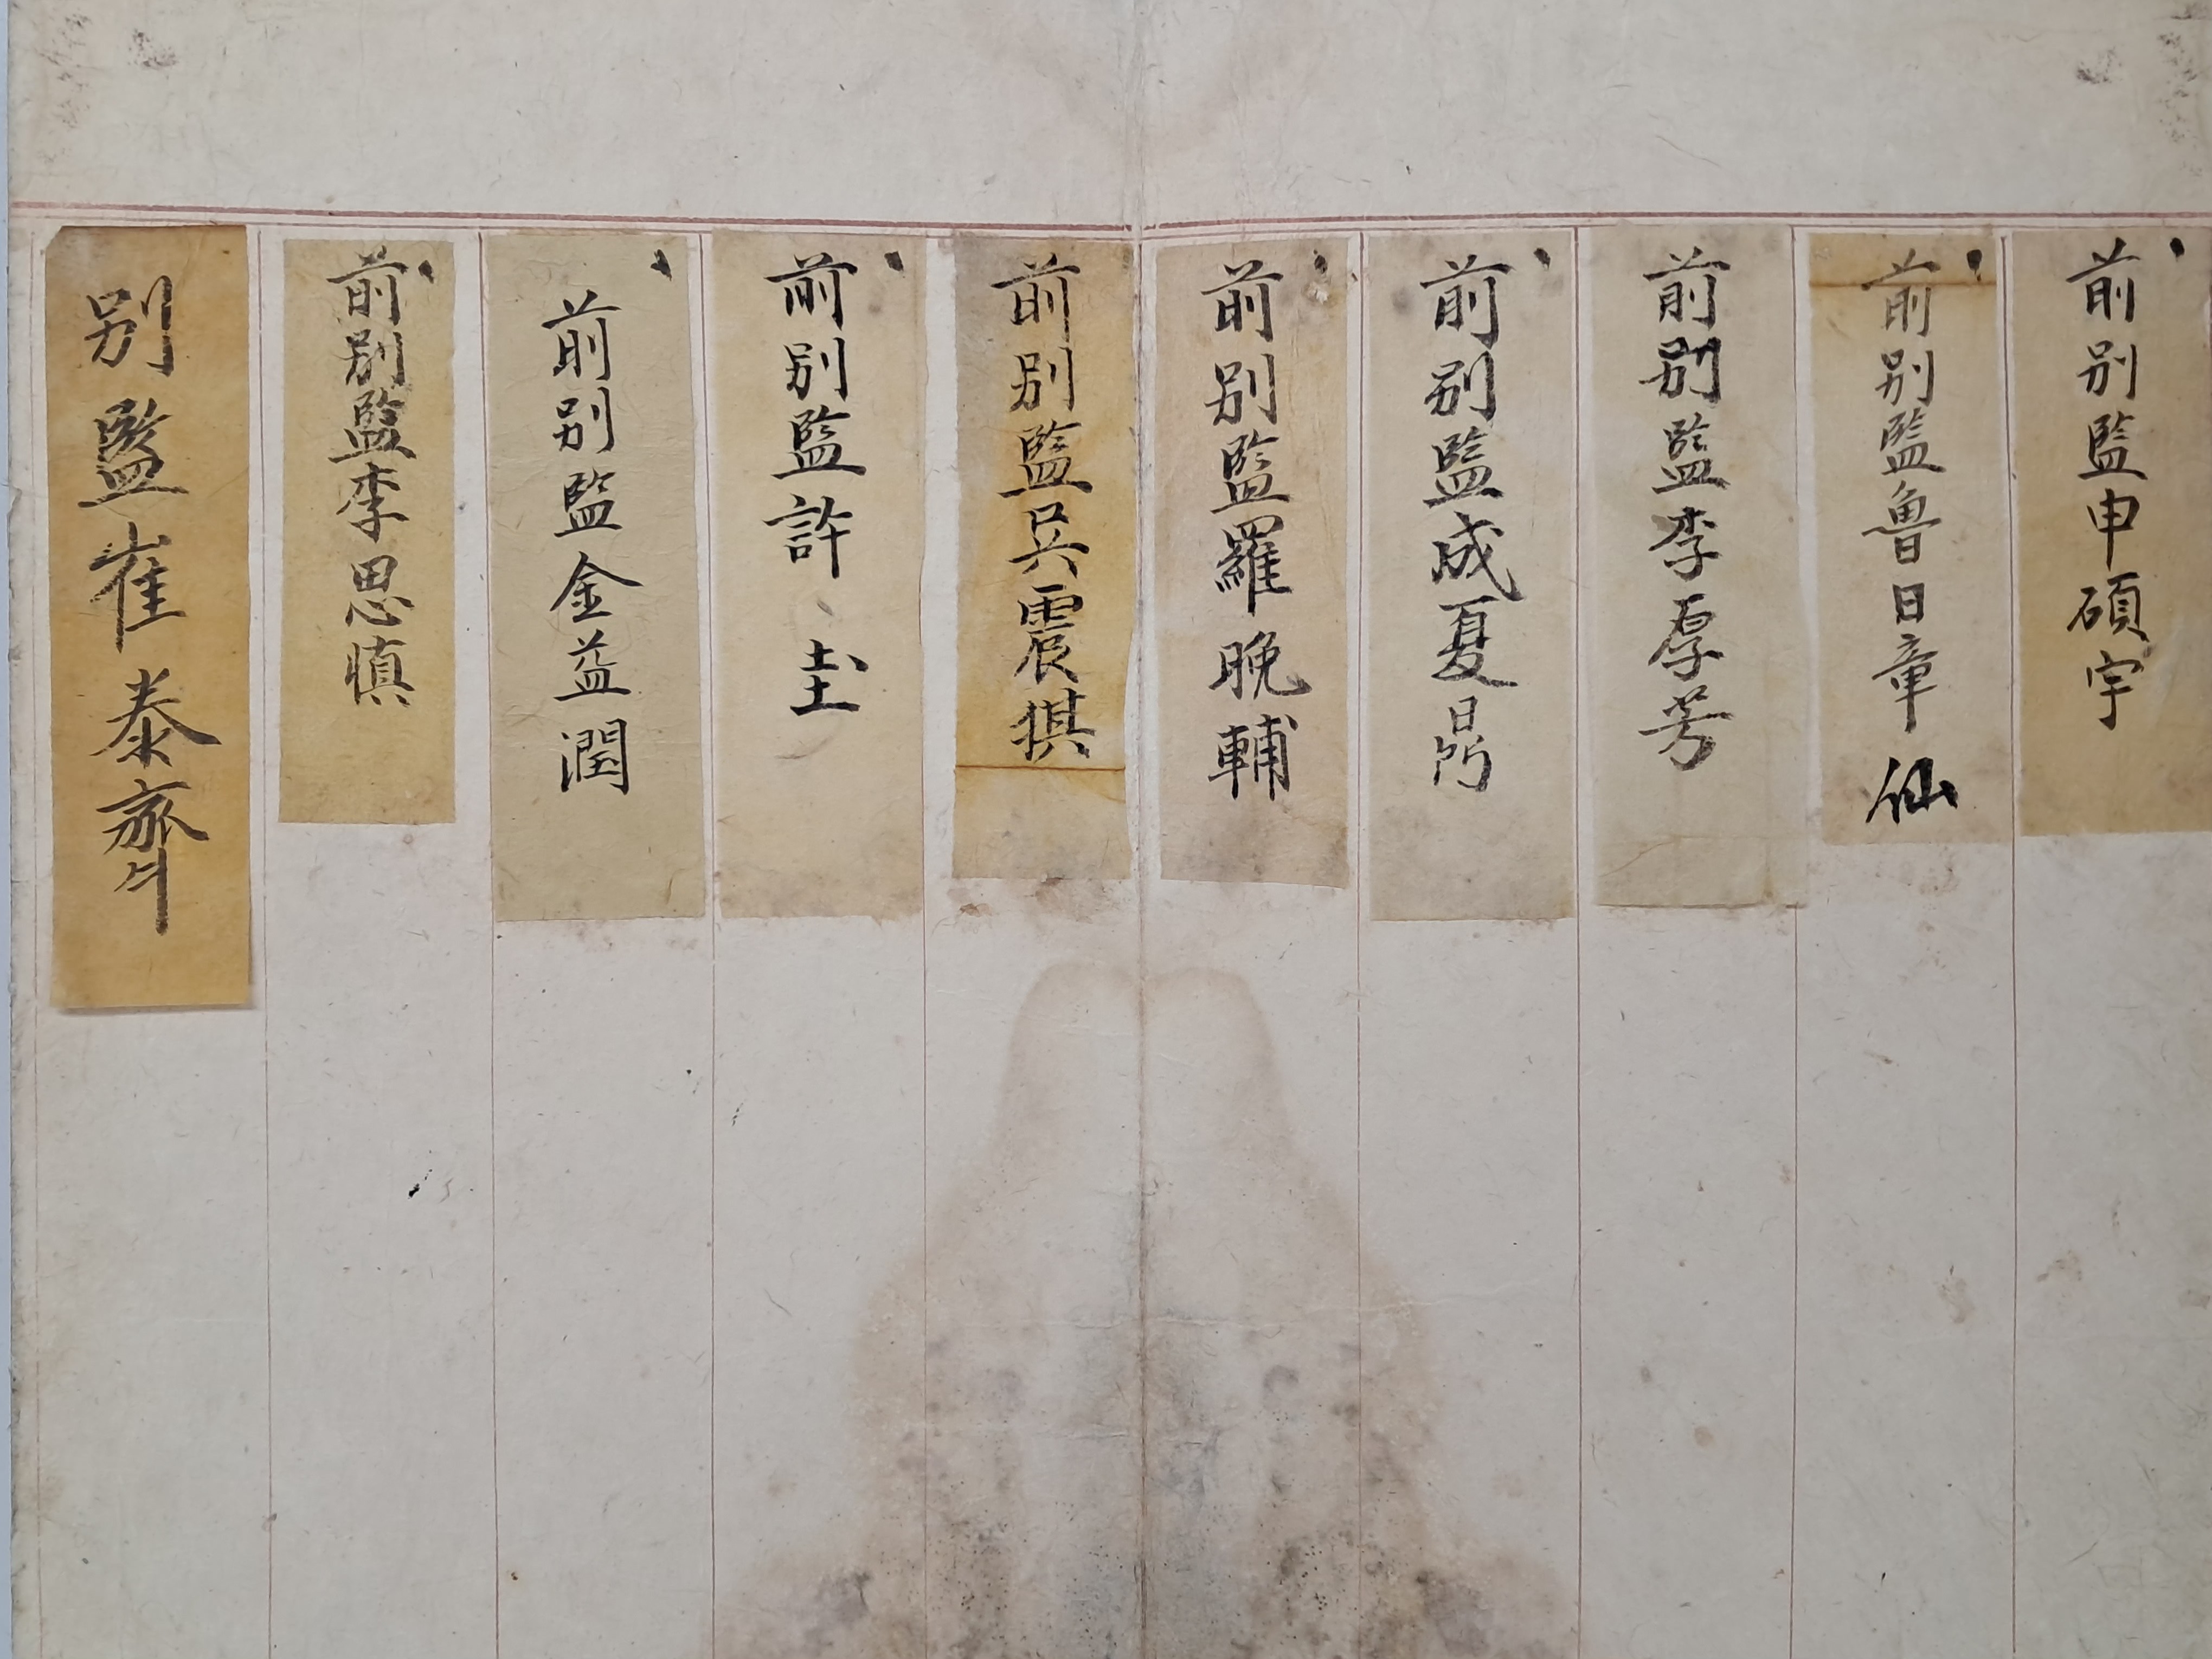 前別監申碩宇
前別監魯日章 仙
前別監李厚芳
前別監成夏昺
前別監羅晩輔
前別監吳震㨳
前別監許 圭
前別監金益潤
前別監李思愼
別監崔泰齊